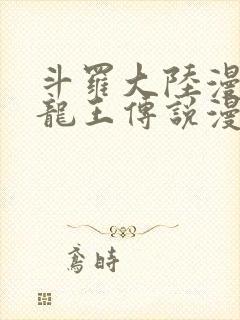 斗羅大陸漫
龍王傳說漫
鳶時